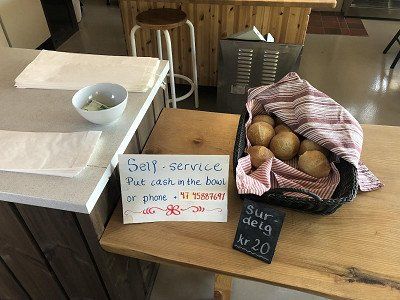 Self-service
Put cash in the bowl
or phone + 47 45887691
Sur-
deig
kr 20